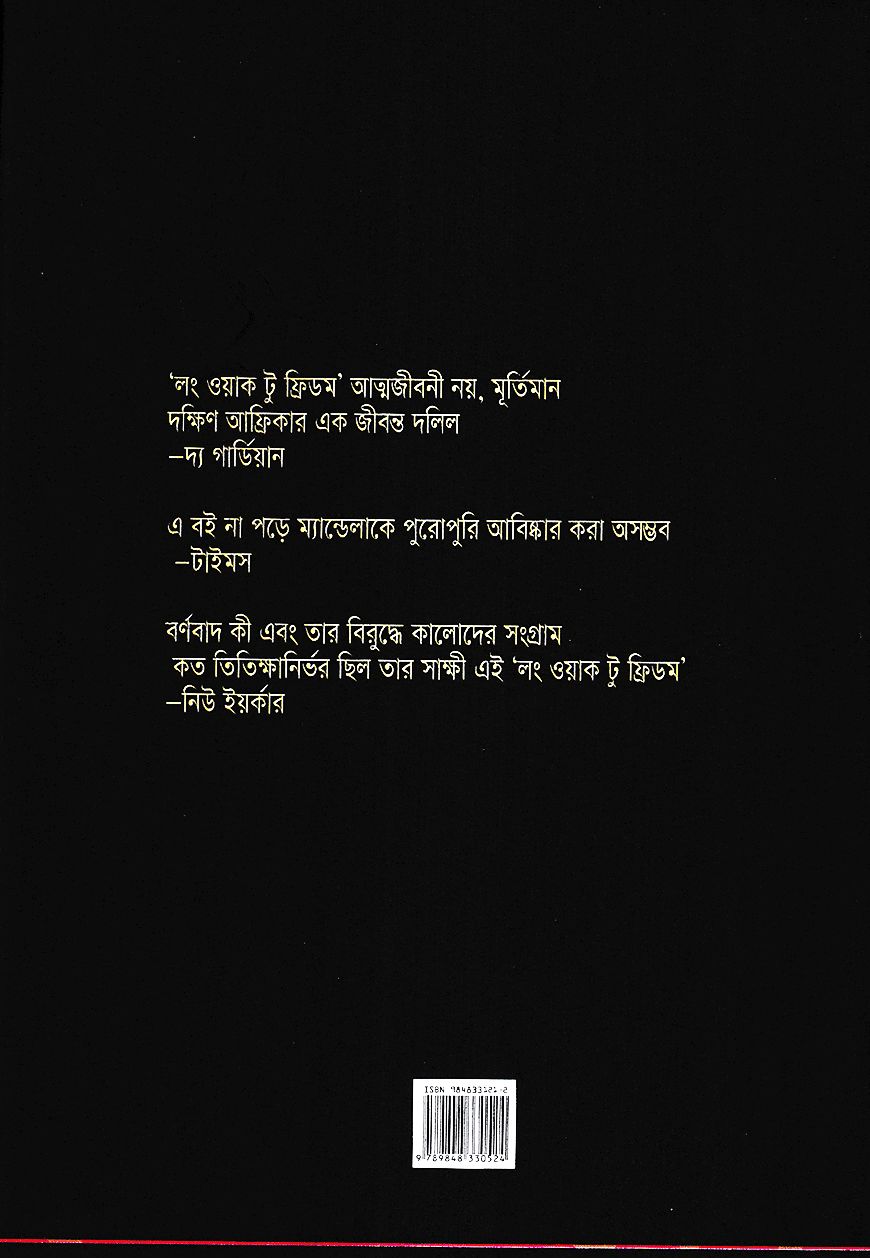 ‘লং ওয়াক টু ফ্রিডম’ আত্মজীবনী নয়, মূর্তিমান
দক্ষিণ আফ্রিকার এক জীবন্ত দলিল
–দ্য গার্ডিয়ান
এ বই না পড়ে ম্যান্ডেলাকে পুরোপুরি আবিষ্কার করা অসম্ভব
–টাইমস
বর্ণবাদ কী এবং তার বিরুদ্ধে কালোদের সংগ্রাম
কত তিতিক্ষানির্ভর ছিল তার সাক্ষী এই ‘লং ওয়াক টু ফ্রিডম’
–নিউ ইয়র্কার
ISBN
9 789848 330524